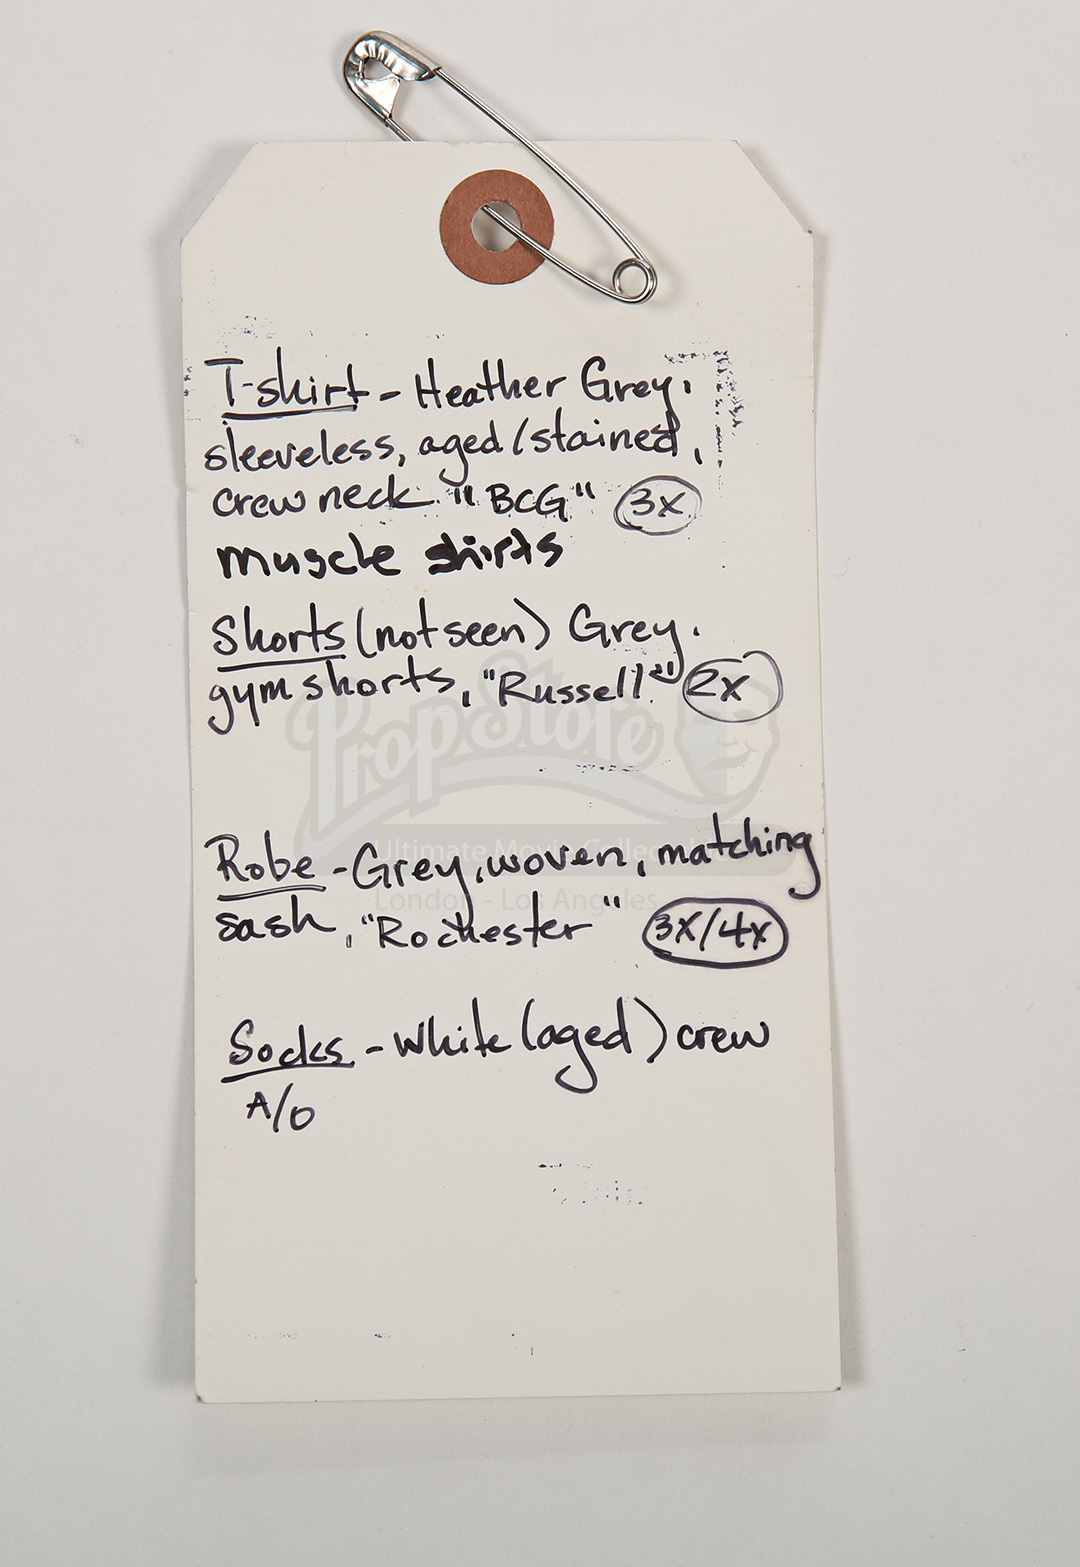 T-shirt - Heather Grey.
sleeveless, aged/stained,
crew neck "BCG" 3x
muscle shirts
Shorts (not seen) Grey.
gym shorts, "Russell" 2x
PropStore
Ultimate Movie Collectibles
London - Los Angeles
Robe - Grey, woven, matching
sash, "Rochester" 3x/4x
Socks - White (aged) crew
A/O